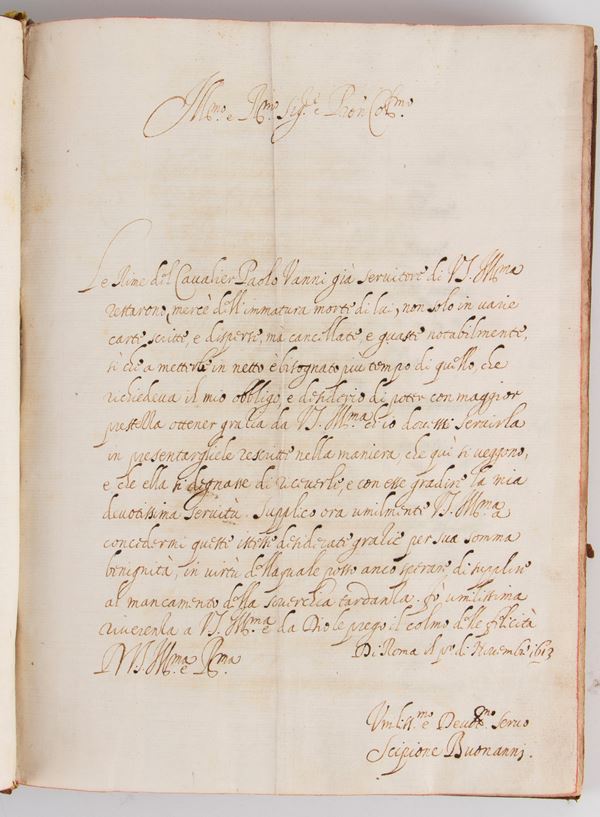 Ill.mo e R.mo Sig.re e Pron Col.mo
Le Rime del Cavalier Paolo Vanni già servitore di V.S. Ill.ma
restarono, mercè dell'immatura morte di lui, non solo in varie
carte scritte, e disperse, mà cancellate, e guaste notabilmente,
sì che a metterle in netto è bisognato più tempo di quello, che
richiedeva il mio obbligo, e desiderio di poter con maggior
prestezza ottener grazia da V.S. Ill.ma ch'io dovessi servirla
in presentargliele rescritte nella maniera, che quì si veggono,
e che ella si degnasse di riceverle, e con esse gradire la mia
devotissima servitù. Supplico ora umilmente V.S. Ill.ma a
concedermi queste istesse desiderate grazie per sua somma
benignità, in virtù della quale posso anco sperare di supplire
al mancamento della soverchia tardanza. Fò umilissima
riverenza a V.S. Ill.ma e da Dio le prego il colmo delle felicità
Di Roma il p.o di Novembre 1613
D V.S. Ill.ma e R.ma
Umiliss.mo e Devot.mo servo
Scipione Buonanni.